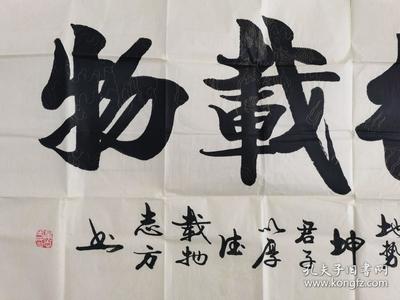 載物
地势
坤
君子
以厚
德
载物
志方
书
孔夫子旧书网
kongfz.com